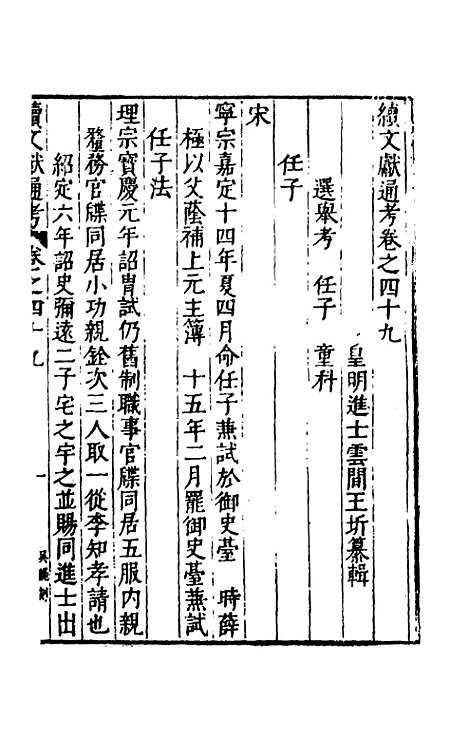 續文獻通考卷之四十九
皇明進士雲間王圻纂輯
選舉考　任子　童科
任子
宋
寧宗嘉定十四年夏四月命任子兼試於御史臺　時薛
極以父蔭補上元主簿　十五年二月罷御史臺兼試
任子法
理宗寶慶元年詔胄試仍舊制職事官牒同居五服內親
釐務官牒同居小功親銓次三人取一從李知孝請也
紹定六年詔史彌遠二子宅之宇之並賜同進士出
續文獻通考　卷之四十九　一